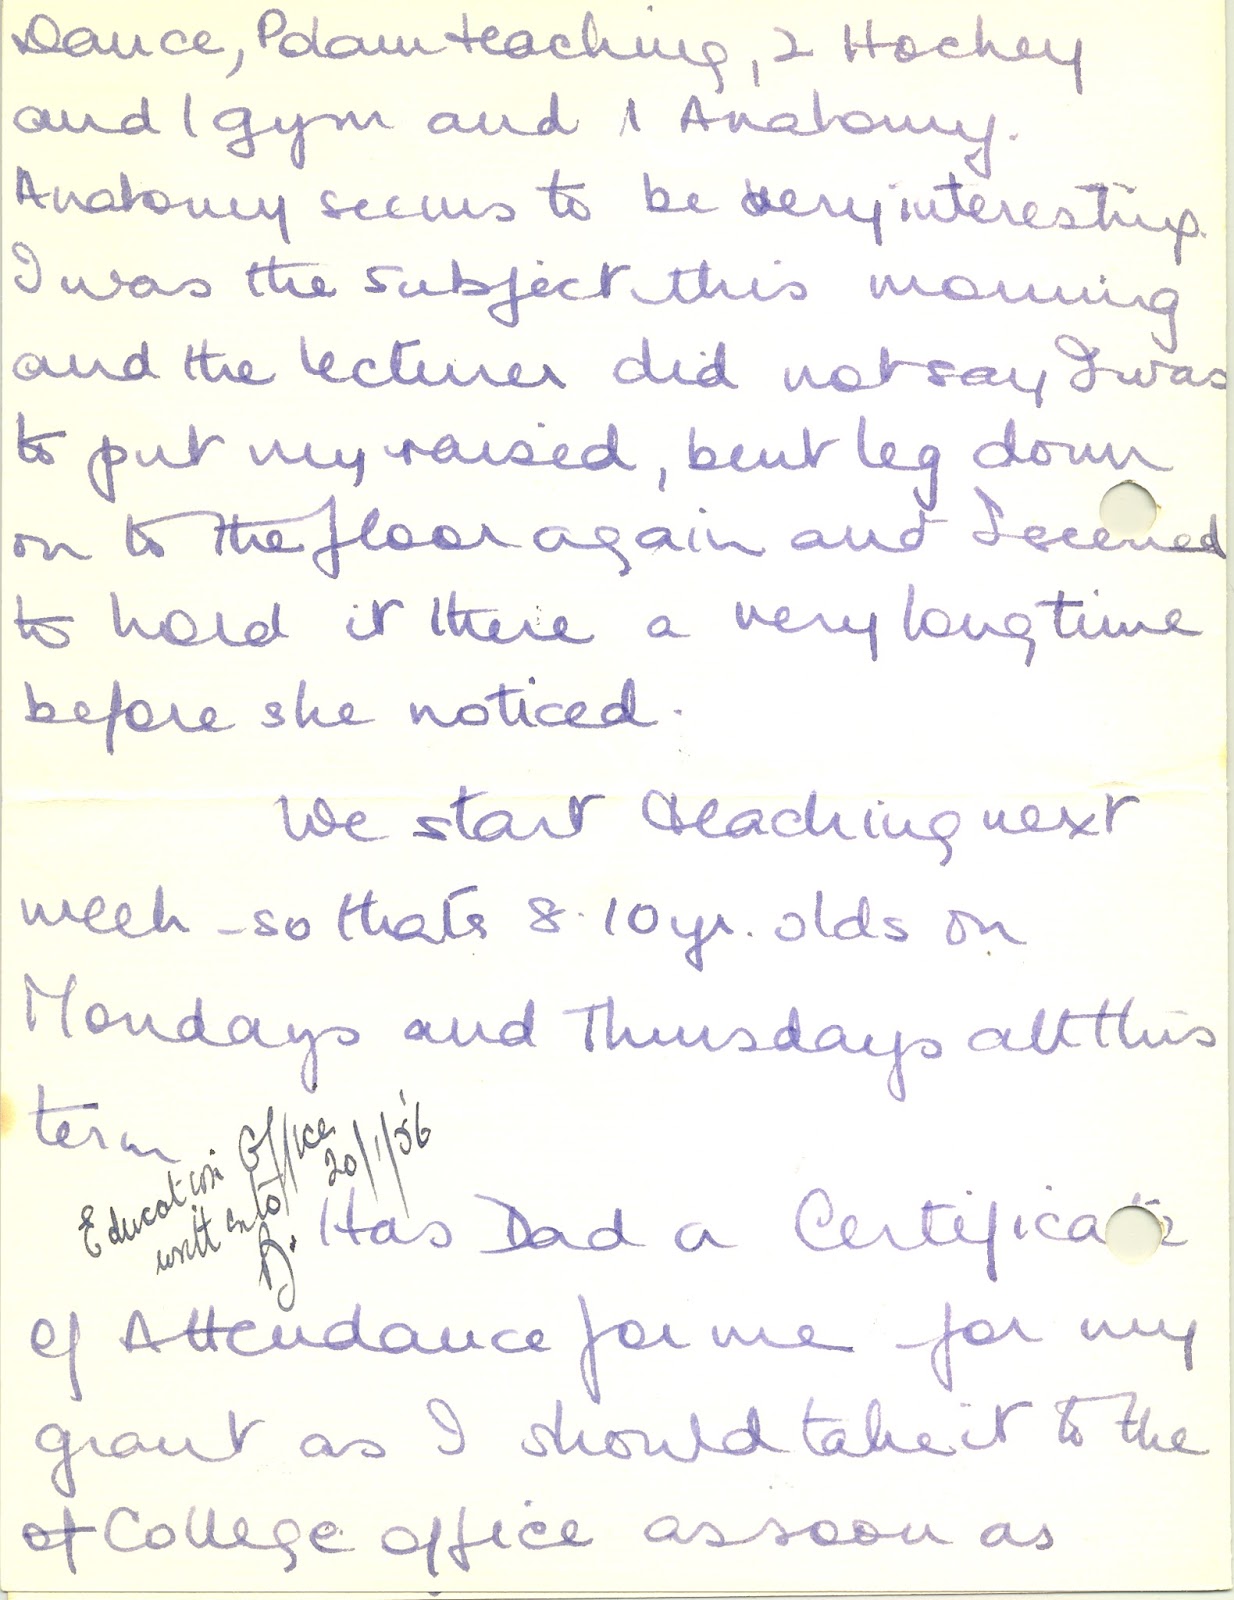 Dance, Pdam teaching, 2 Hockey
and 1 gym and 1 Anatomy.
Anatomy seems to be very interesting.
I was the subject this morning
and the lecturer did not say I was
to put my raised, bent leg down
on to the floor again and I seemed
to hold it there a very long time
before she noticed.
We start teaching next
week - so thats 8-10 yr. olds on
Mondays and Thursdays all this
term
Education Office
written to 20/1/56
D.
Has Dad a Certificate
of Attendance for me for my
grant as I should take it to the
of College office as soon as